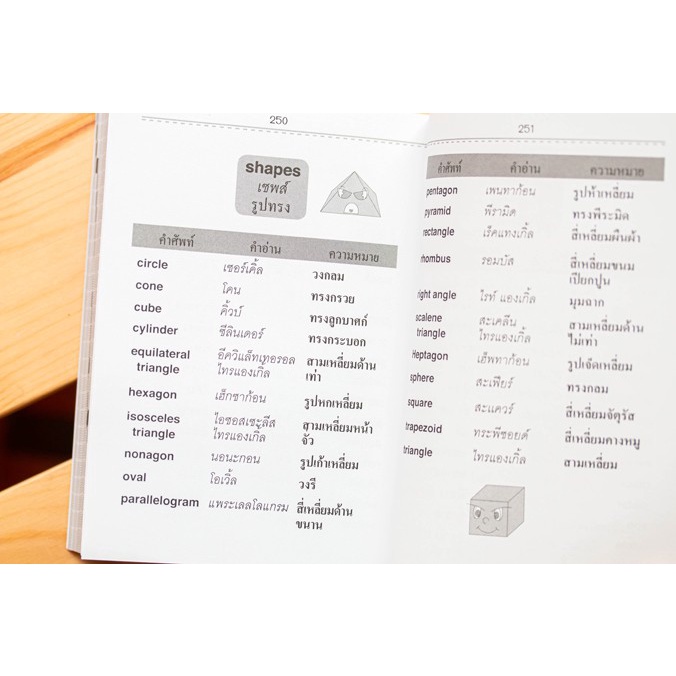 250
shapes
เชพส์
รูปทรง
คำศัพท์ คำอ่าน ความหมาย
circle เซอร์เคิ้ล วงกลม
cone โคน ทรงกรวย
cube คิ้วบ์ ทรงลูกบาศก์
cylinder ซีลินเดอร์ ทรงกระบอก
equilateral อีควิแล็ทเทอรอล สามเหลี่ยมด้าน
triangle ไทรแองเกิ้ล เท่า
hexagon เฮ็กซาก้อน รูปหกเหลี่ยม
isosceles ไอซอสเซะลีส สามเหลี่ยมหน้า
triangle ไทรแองเกิ้ล จั่ว
nonagon นอนะกอน รูปเก้าเหลี่ยม
oval โอเวิ้ล วงรี
parallelogram แพระเลลโลแกรม สี่เหลี่ยมด้าน
ขนาน
251
คำศัพท์ คำอ่าน ความหมาย
pentagon เพนทาก้อน รูปห้าเหลี่ยม
pyramid พีรามิด ทรงพีระมิด
rectangle เร็คแทงเกิ้ล สี่เหลี่ยมผืนผ้า
rhombus รอมบัส สี่เหลี่ยมขนม
เปียกปูน
right angle ไรท์ แองเกิ้ล มุมฉาก
scalene สะเคลีน สามเหลี่ยมด้าน
triangle ไทรแองเกิ้ล ไม่เท่า
Heptagon เฮ็พทาก้อน รูปเจ็ดเหลี่ยม
sphere สะเฟียร์ ทรงกลม
square สะแควร์ สี่เหลี่ยมจัตุรัส
trapezoid ทระพีซอยด์ สี่เหลี่ยมคางหมู
triangle ไทรแองเกิ้ล สามเหลี่ยม